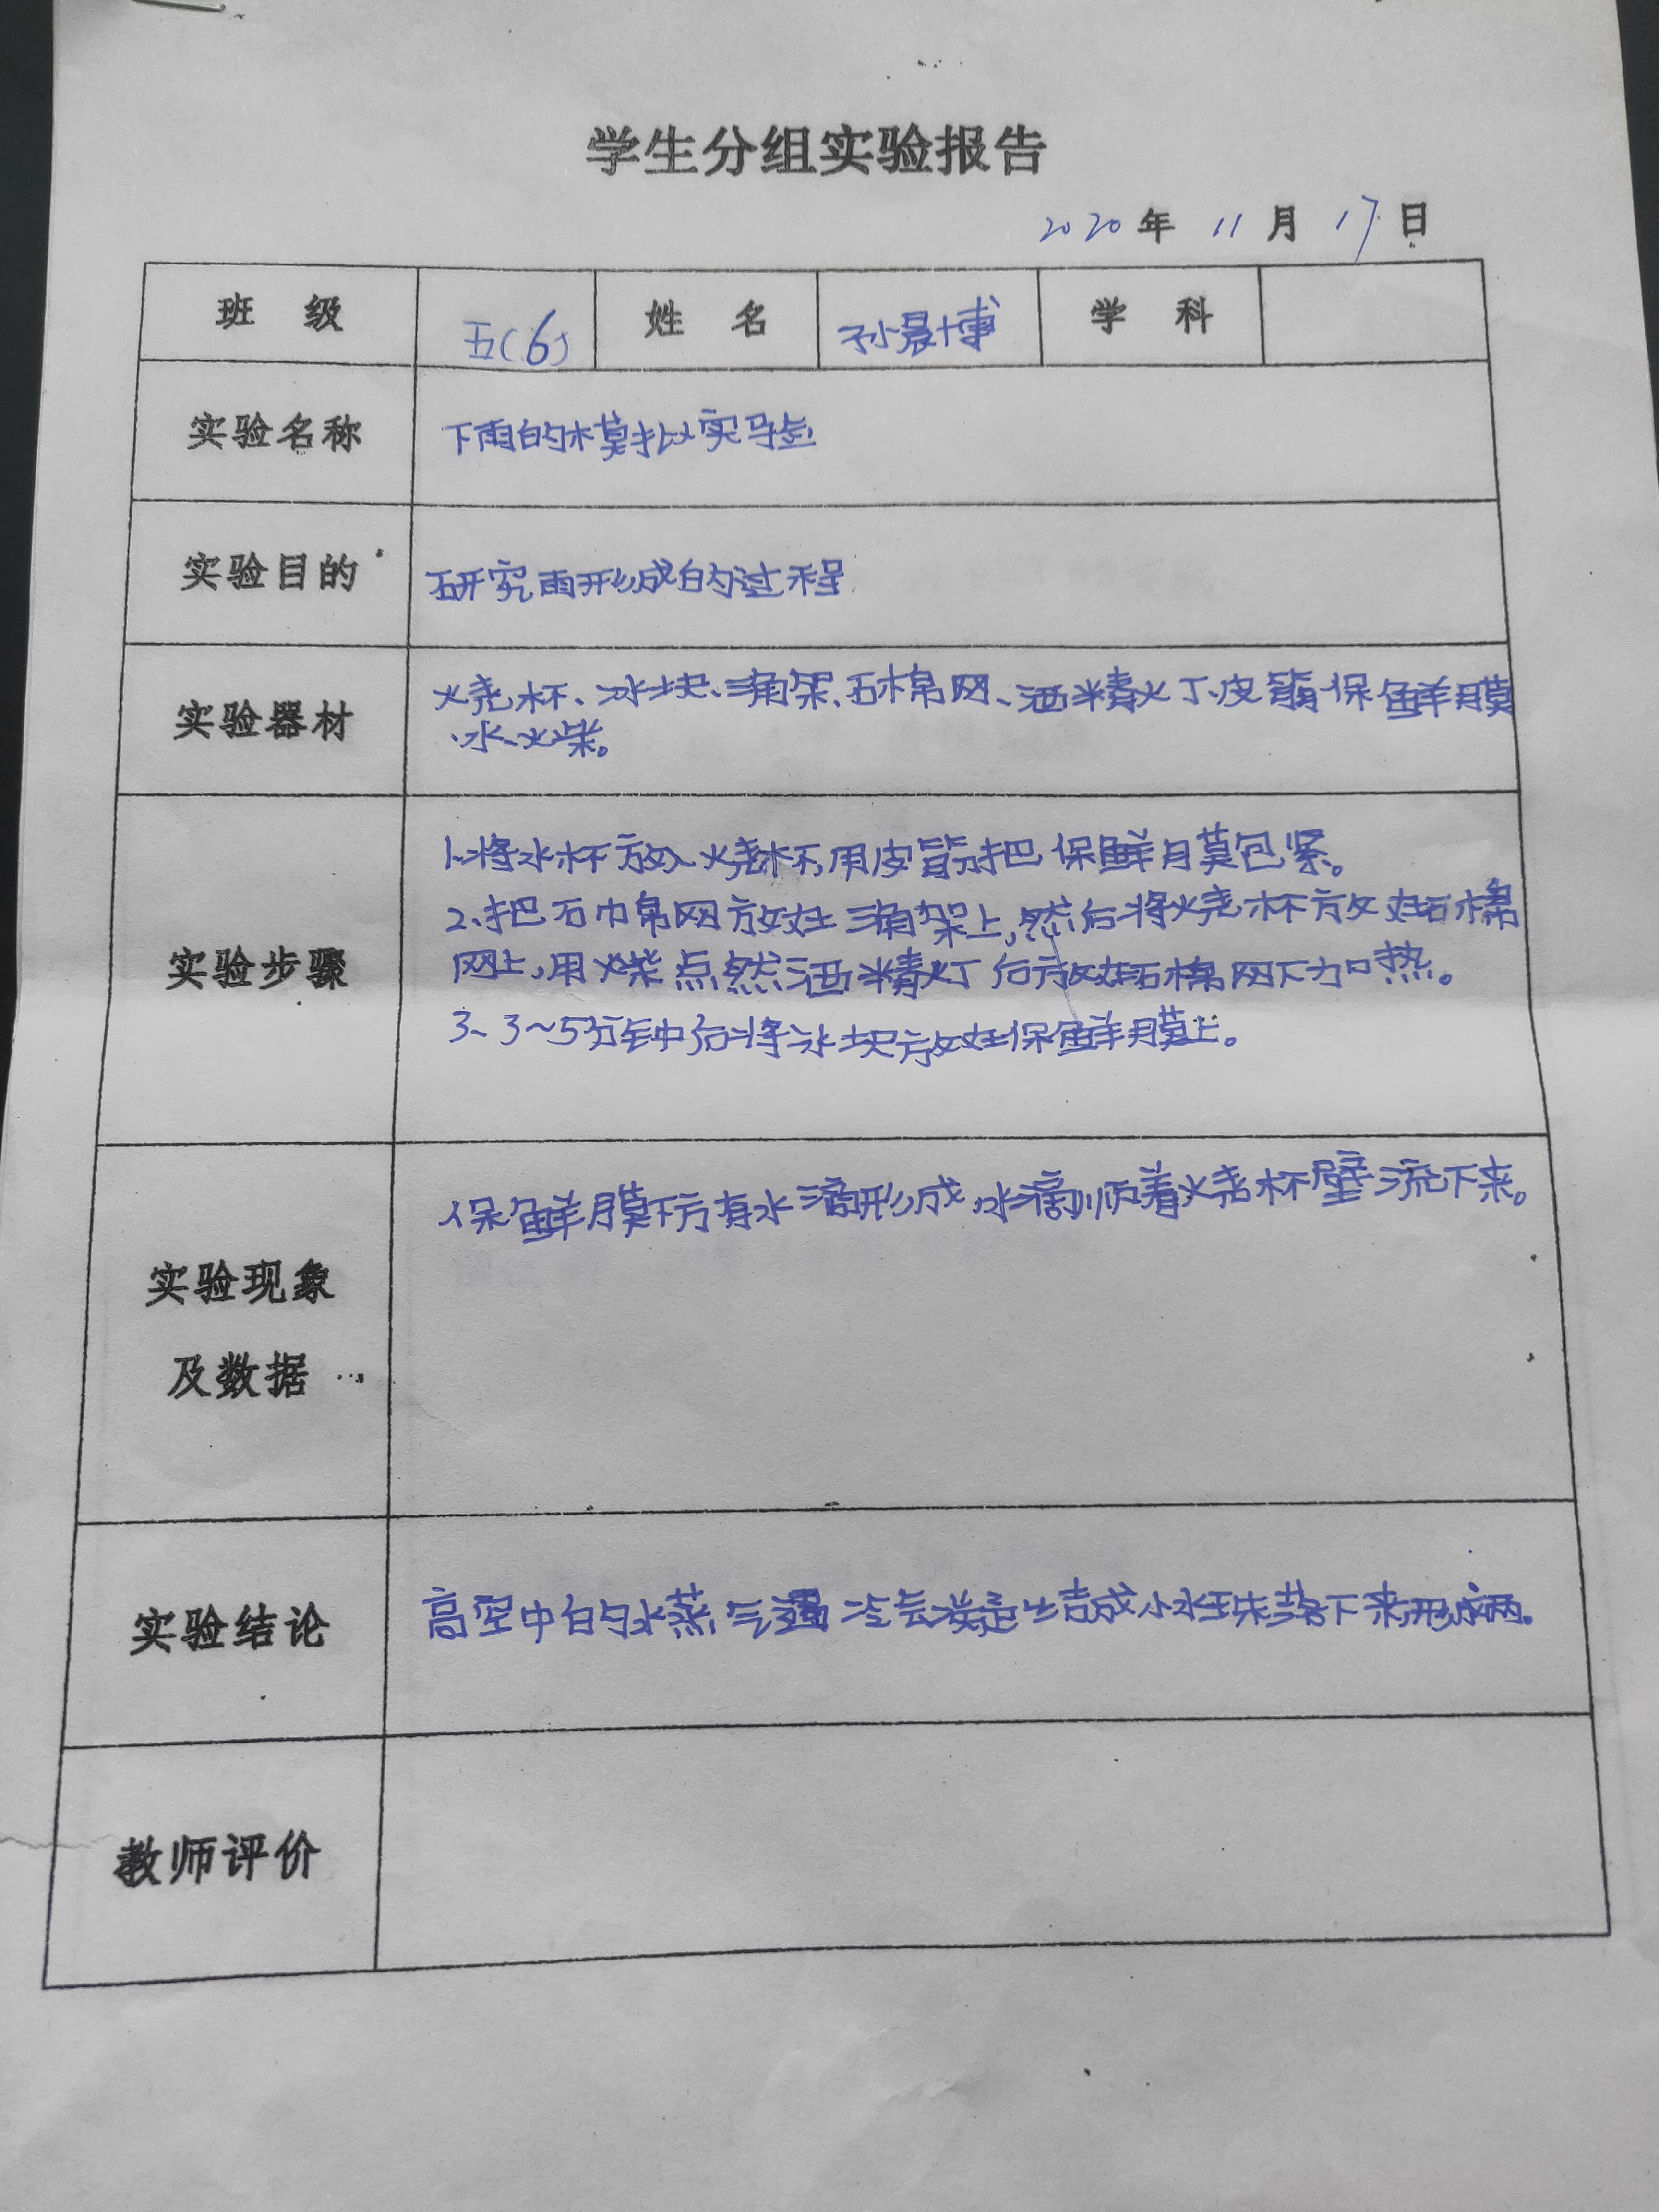 学生分组实验报告
2020年 11月 17日
班 级 五(6) 姓 名 孙晨博 学 科
实验名称 下雨的模拟实验
实验目的 研究雨形成的过程
实验器材 烧杯、冰块、三角架、石棉网、酒精灯、皮筋、保鲜膜
、水、火柴。
实验步骤
1、将水杯放入烧杯,用皮筋把保鲜膜包紧。
2、把石巾帛网放在三角架上,然后将烧杯放在石棉
网上,用火柴点然酒精灯后放在石棉网下加热。
3、3~5分钟后将冰块放在保鲜膜上。
实验现象
及数据
保鲜膜下方有水滴形成,水滴顺着烧杯壁流下来。
实验结论 高空中的水蒸气遇冷气凝结成小水珠落下来形成雨。
教师评价